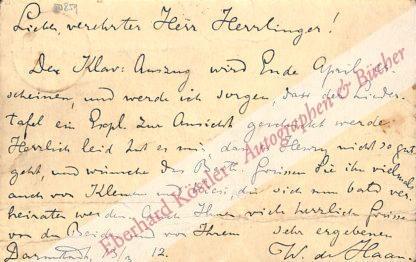 Lieber, verehrter Herr Herrlinger!
Der Klav: Auszug wird Ende April er-
scheinen, und werde ich sorgen, dass der Lieder-
tafel ein Expl. zur Ansicht geschickt werde
Herzlich leid tut es mir, dass Henry nicht so gut
geht, und wünsche das Beste. Grüssen Sie ihn vielmals
auch von Klemens und die sich nun bald ver-
heiraten werden. Ihnen, viele herzliche Grüsse
von den Beiden und von Ihrem sehr ergebenen
Darmstadt, 12. W. de Haan
Eberhard Köstler Autographen & Bücher